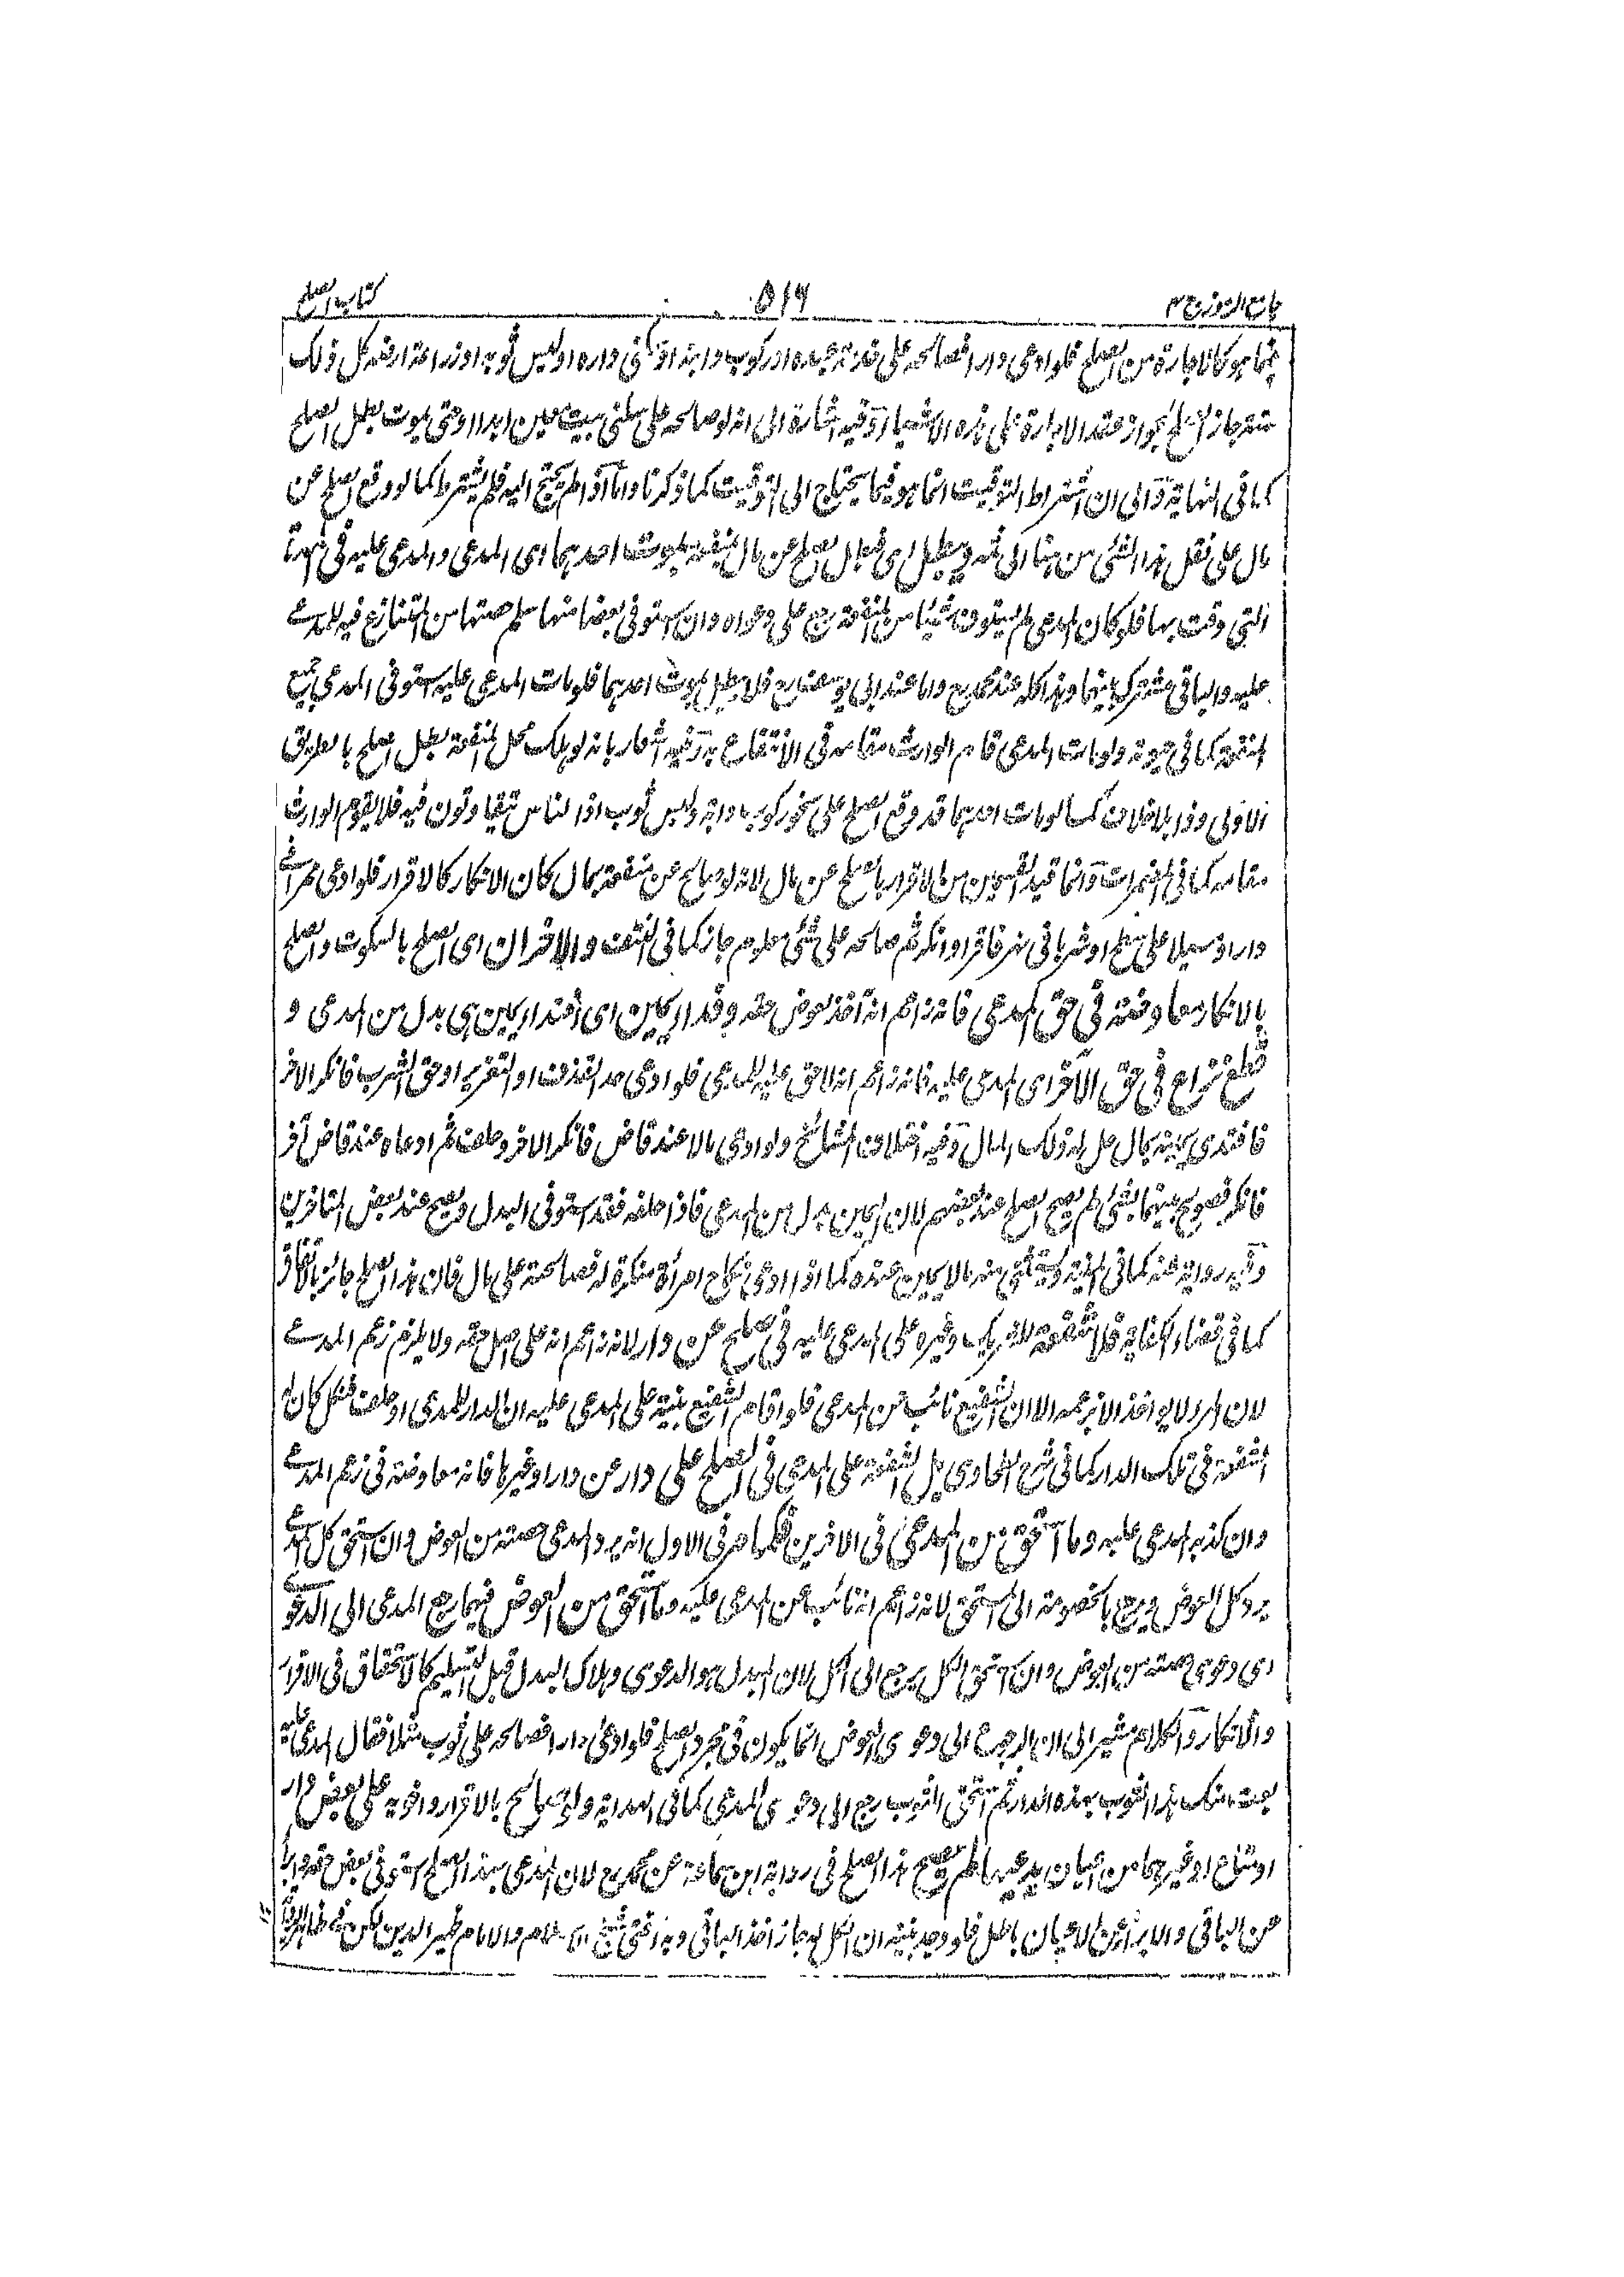 جامع الرموز ج ٣ ٥١٦ كتاب الصلح
هو كالاجارة من الصلح فلو ادعى دارا فصالحه على خدمة عبده او ركوب دابته او سكنى داره او لبس ثوبه او زراعة ارضه كل ذلك
جاز الصلح لجواز عقد الاجارة على هذه الاشياء وفيه اشارة الى انه لو صالحه على سكنى بيت معين ابدا او حتى يموت بطل الصلح
كما فى النهاية والى ان اشتراط التوقيت انما هو فيما يحتاج الى التوقيت كما ذكرنا واما اذا لم يحتج اليه فلم يشترط كما لو وقع الصلح عن
مال على نقل هذا الشئ من هنا الى ثمه ويبطل اى الصلح عن مال بمنفعة بموت احدهما اى المدعى والمدعى عليه فى
التى وقت بها فلو كان المدعى لم يستوف شيئا من المنفعة رجع على دعواه وان استوفى بعضا منها سلم حصتها من المتنازع فيه للمدعى
عليه والباقى مشترك بينهما وهذا كله عند محمد رح واما عند ابى يوسف رح فلا يبطل بموت احدهما فلو مات المدعى عليه استوفى المدعى جميع
المنفعة كما فى حيوته ولو مات المدعى قام الوارث مقامه فى الانتفاع به وفيه اشعار بانه لو هلك محل المنفعة بطل الصلح بالطريق
الاولى وذا بلا خلاف كما لو مات احدهما وقد وقع الصلح على نحو ركوب دابة ولبس ثوب اذ الناس يتفاوتون فيه فلا يقوم الوارث
مقامه كما فى المضمرات وانما قيد القسمين من الاقرار بالصلح عن مال لانه لو صالح عن منفعة بمال كان الانكار كالاقرار فلو ادعى ممرا فى
دار او مسيلا على سطح او شربا فى نهر فاقر او انكر ثم صالحه على شئ معلوم جاز كما فى النتف والاخران اى الصلح بالسكوت والصلح
بالانكار معاوضة فى حق المدعى فانه زاعم انه اخذ عوض حقه وفداء يمين اى افتداء يمين هى بدل من المدعى و
قطع نزاع فى حق الآخر اى المدعى عليه فانه زاعم انه لا حق عليه للمدعى فلو ادعى حد القذف او التعزير او حق الشرب فانكر الآخر
فافتدى يمينه بمال حل له ذلك المال وفيه اختلاف المشائخ ولو ادعى مالا عند قاض فانكر الاخر وحلف ثم ادعاه عند قاض آخر
فانكر فصولح بينهما بشئ لم يصح الصلح عند بعضهم لان اليمين بدل من المدعى فاذا حلفه فقد استوفى البدل ويصح عند بعض المتاخرين
وفيه رواية عنه كما فى ويستثنى منه ما لا يمين عنده كما اذا ادعى نكاح امرأة منكرة له فصالحته على مال فان هذا الصلح جائز بالاتفاق
كما فى قضاء الكفاية فلا شفعة للشريك وغيره على المدعى عليه فى صلح عن دار لانه زاعم انه على اصل حقه ولا يلزم زعم المدعى
لان المرء لا يواخذ الا بزعمه الا ان الشفيع نائب عن المدعى فلو اقام الشفيع بينة على المدعى عليه ان الدار للمدعى او حلف فنكل كان له
الشفعة فى تلك الدار كما فى شرح الطحاوى بل الشفعة على المدعى فى الصلح على دار عن دار او غيرها فانه معاوضة فى زعم المدعى
وان كذبه المدعى عليه وما استحق من المدعى فى الاخرين فكما مر فى الاول انه يرد المدعى حصته من العوض وان استحق كل المدعى
يرد كل العوض ويرجع بالخصومة الى المستحق لانه زاعم انه نائب عن المدعى عليه وما استحق من العوض فيهما رجع المدعى الى الدعوى
اى دعوى حصته من العوض وان استحق الكل يرجع الى الكل لان المبدل هو الدعوى وهلاك البدل قبل التسليم كالاستحقاق فى الاقرار
والانكار والكلام مشير الى ان الرجوع الى دعوى العوض انما يكون فى مجرد الصلح فلو ادعى دارا فصالحه على ثوب مثلا فقال المدعى عليه
بعت منك هذا الثوب بهذه الدار ثم استحق الثوب رجع الى دعوى المدعى كما فى الهداية ولو صالح بالاقرار واخويه على بعض دار
او متاع او غيرهما من اعيان يدعيها لم يصح هذا الصلح فى رواية ابن سماعة عن محمد رح لان المدعى بهذا الصلح استوفى بعض حقه وابرأ
عن الباقى والابراء عن الاعيان باطل فلو وجد بينة ان الكل له جاز اخذ الباقى وبه افتى شيخ الاسلام والامام ظهير الدين لكن فى ظاهر الرواية